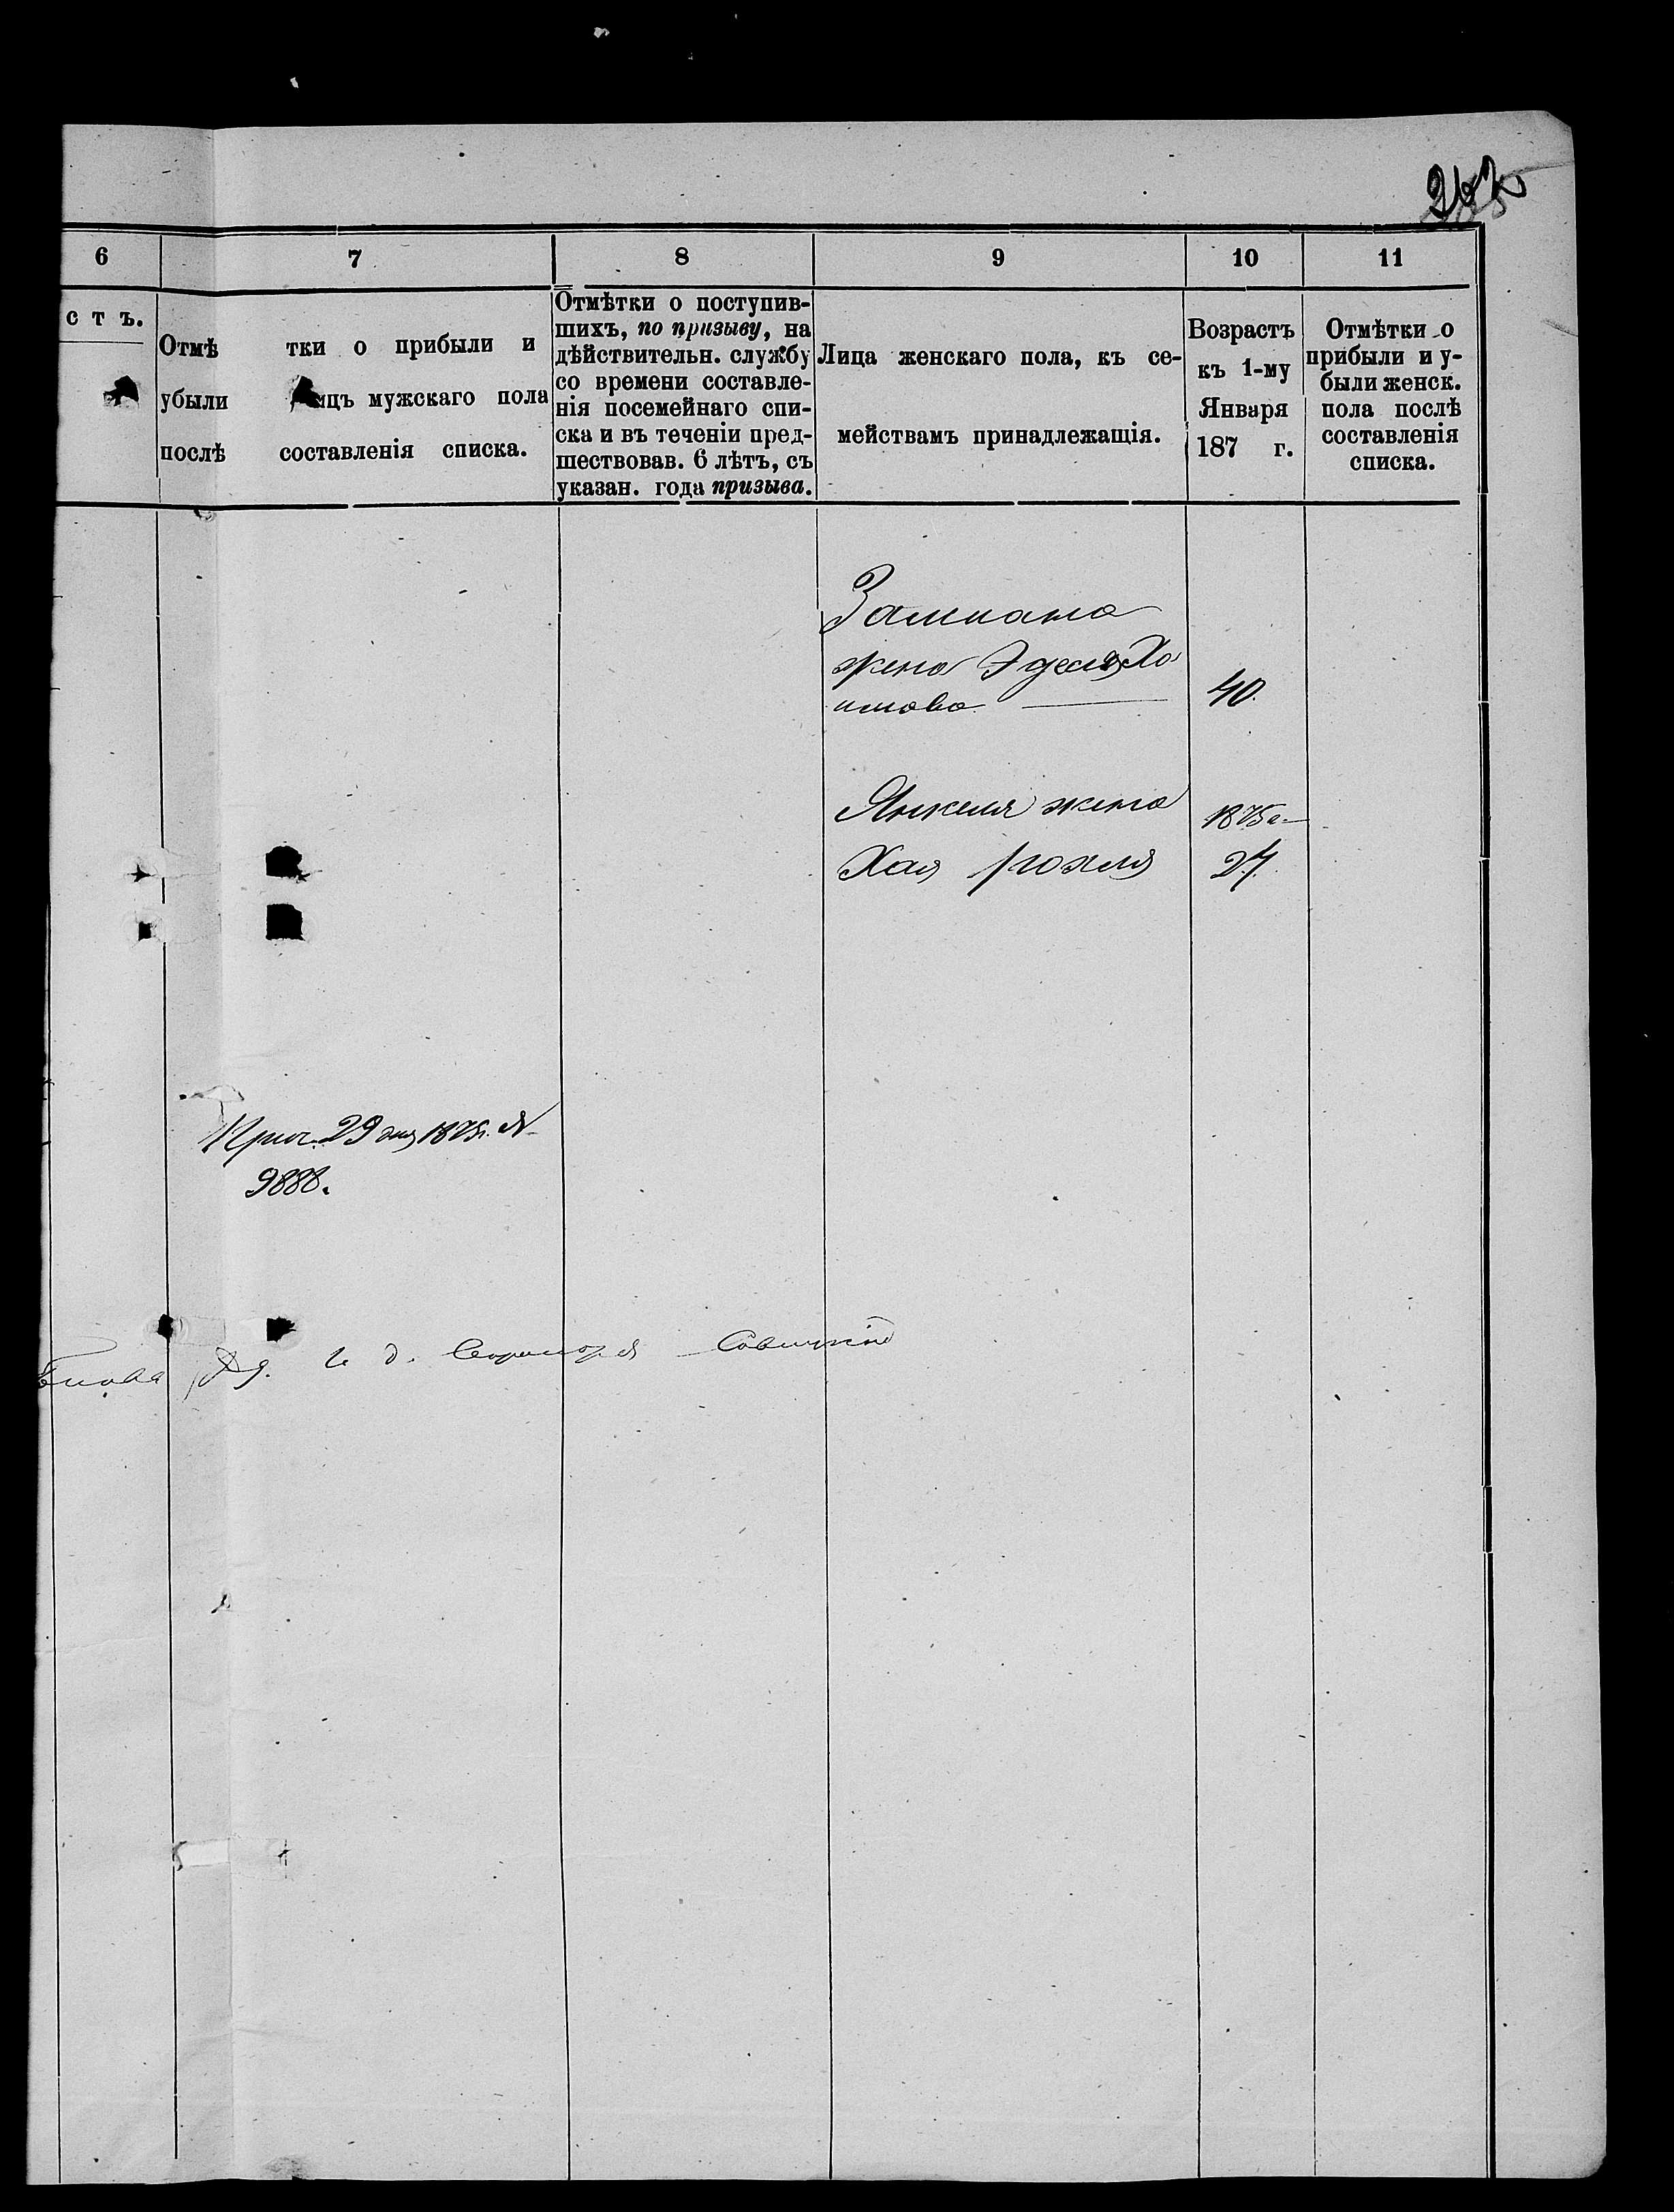 6 7 8 9 10 11
стъ.
Отмѣтки о прибыли и
убыли лицъ мужскаго пола
послѣ составленія списка.
Отмѣтки о поступив-
шихъ, по призыву, на
дѣйствительн. службу
со времени составле-
нія посемейнаго спи-
ска и въ теченіи пред-
шествовав. 6 лѣтъ, съ
указан. года призыва.
Лица женскаго пола, къ се-
мействамъ принадлежащія.
Возрастъ
къ 1-му
Января
187 г.
Отмѣтки о
прибыли и у-
были женск.
пола послѣ
составленія
списка.
Залмана
жена Эделя Ха
имова 40.
Янкеля жена 1875 г.
Хая рохля 24.
29 1875 г. №
9888.
И. д. Секретаря Савицкій